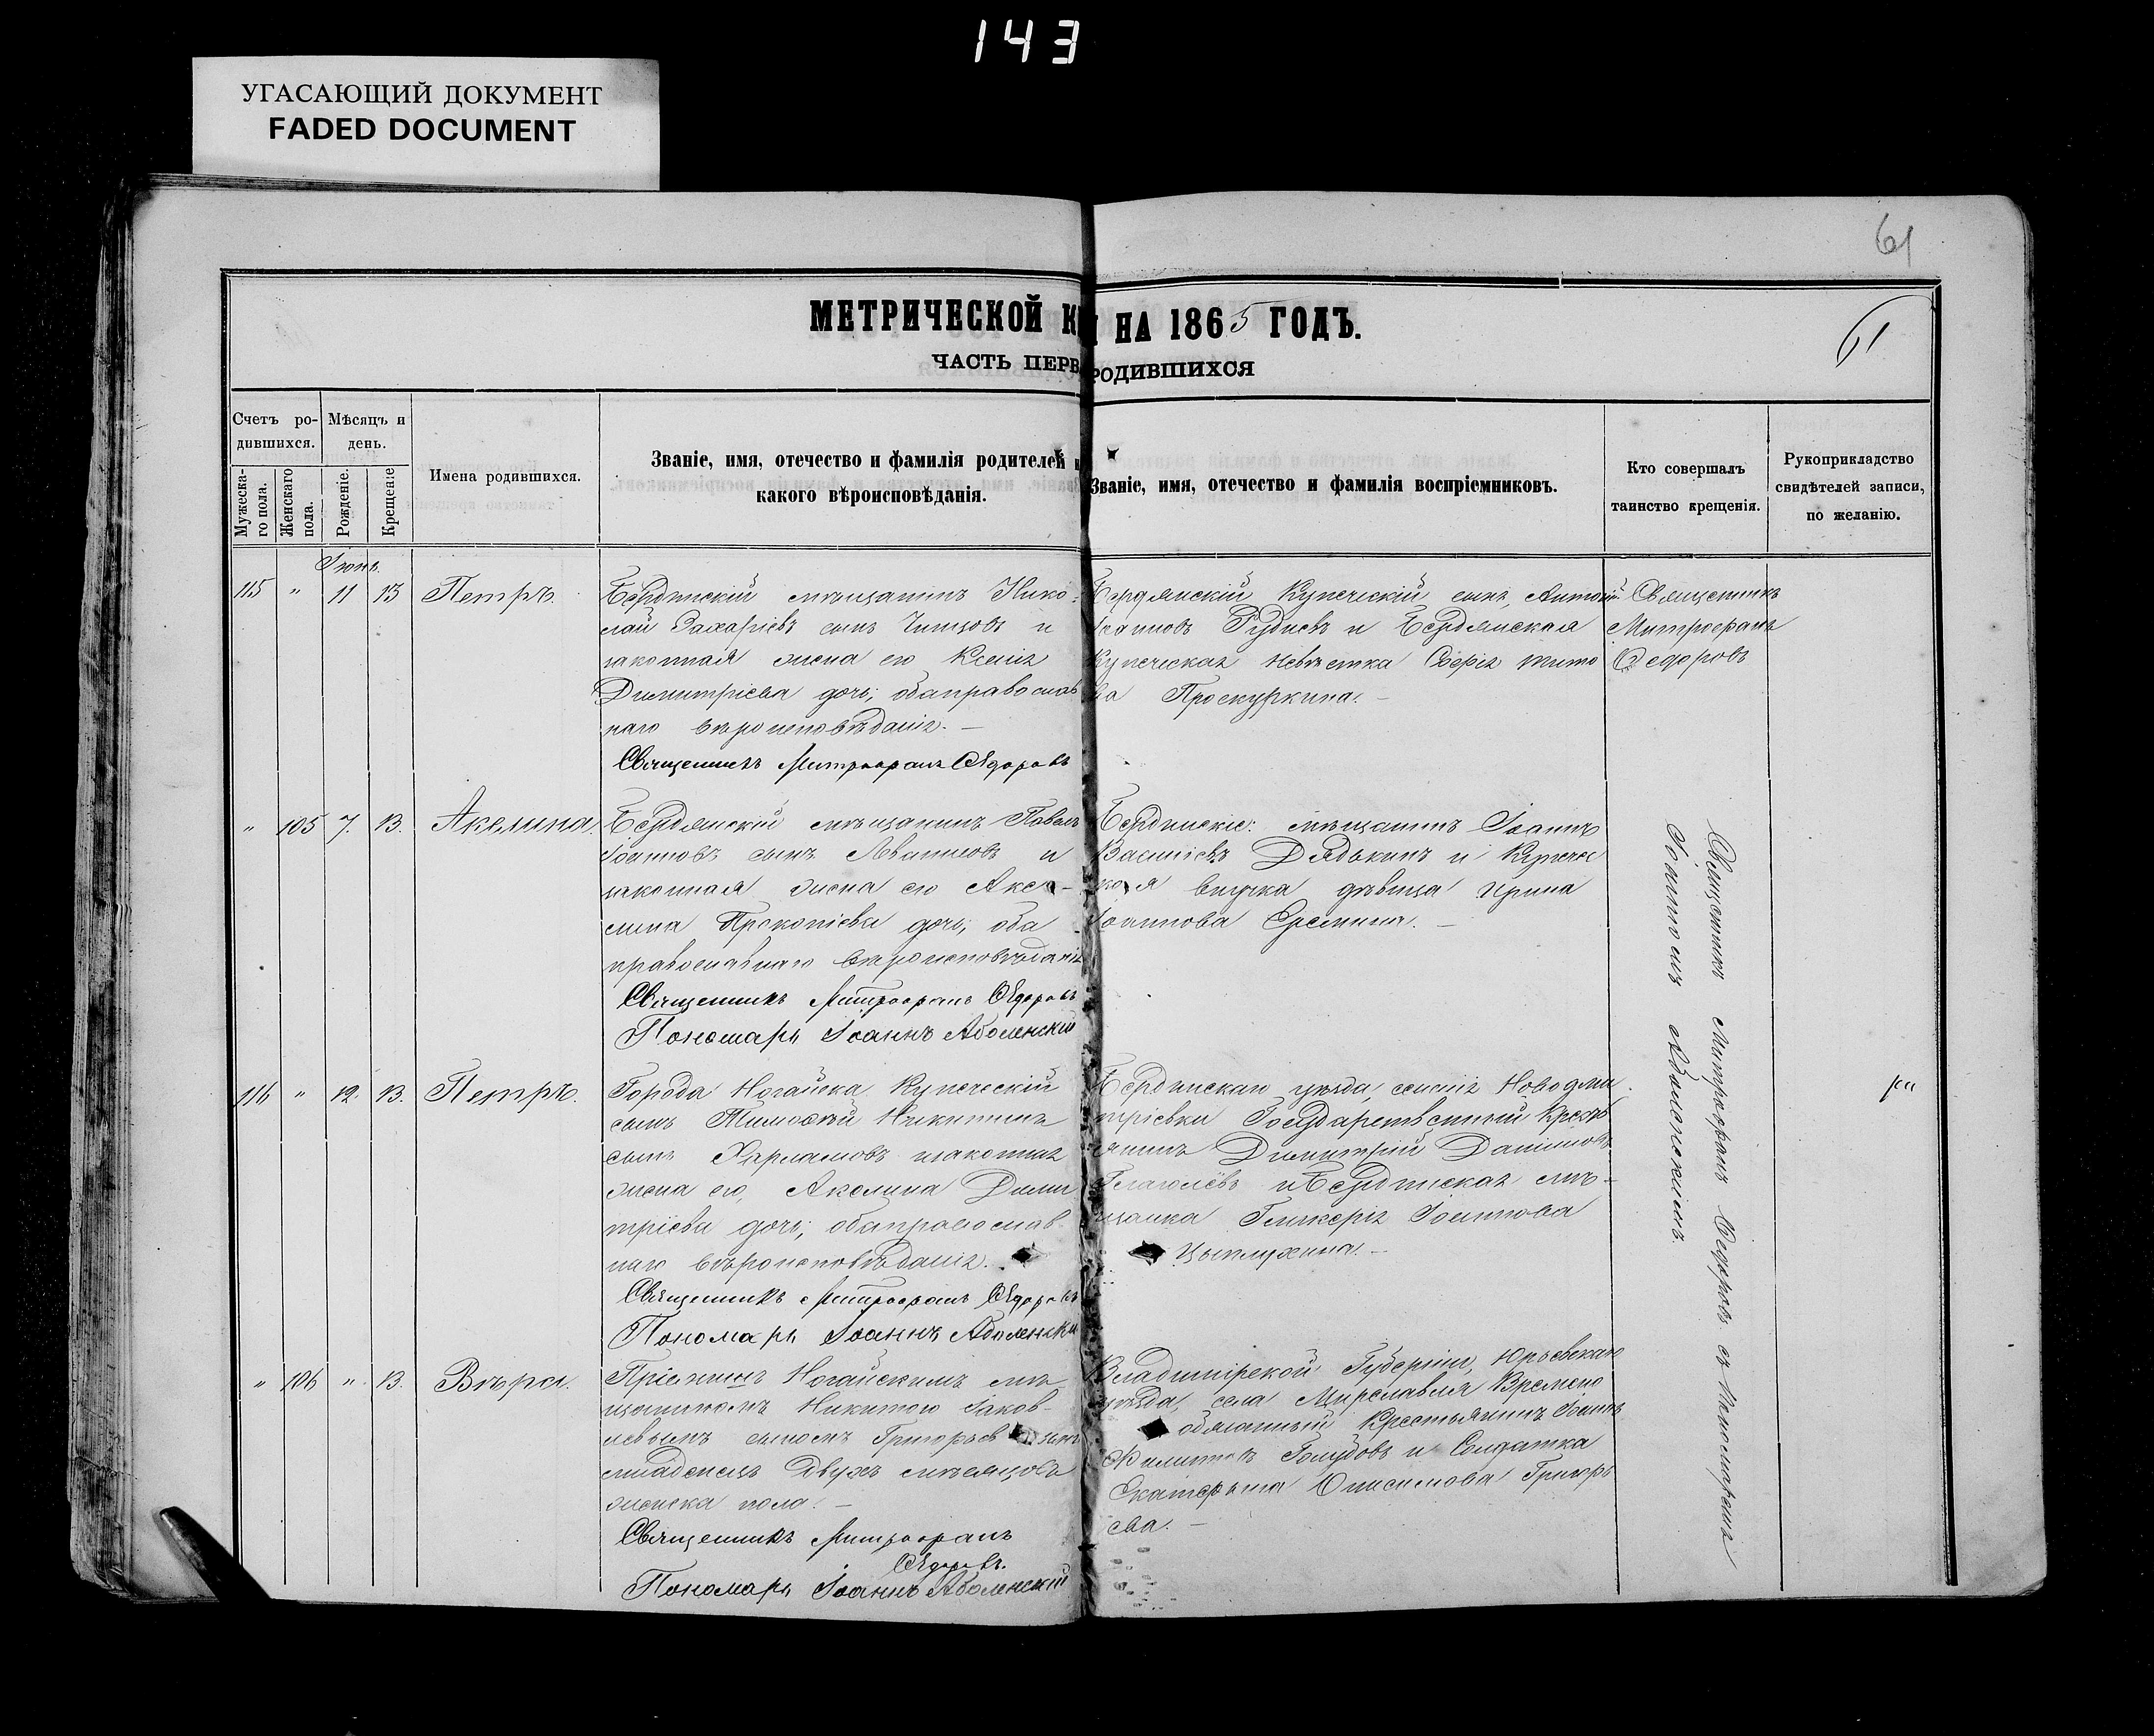 143
УГАСАЮЩИЙ ДОКУМЕНТ
FADED DOCUMENT
61
МЕТРИЧЕСКОЙ К НА 1865 ГОДЪ.
61
ЧАСТЬ ПЕРВ РОДИВШИХСЯ
Счетъ ро-
дившихся.
Мужеска-
го пола.
Женскаго
пола.
Мѣсяцъ и
день.
Рожденіе.
Крещеніе
Имена родившихся.
Званіе, имя, отечество и фамилія родителей и
какого вѣроисповѣданія.
Званіе, имя, отечество и фамилія воспріемниковъ.
Кто совершалъ
таинство крещенія.
Рукоприкладство
свидѣтелей записи,
по желанію.
Іюнь.
115 " 11 13 Петръ.
Бердянскій мѣщанинъ Нико-
лай Захаріевъ сынъ и
законная жена его Ксенія
Димитріева дочь; оба православ
наго вѣроисповѣданія. —
Священникъ Митрофанъ Ѳедоровъ
Бердянскій Купеческій сынъ, Антоній
Іоанновъ Рудневъ и Бердянская
Купеческая невѣстка Софія Тито
ва Проскуркина. —
Священникъ
Митрофанъ
Ѳедоровъ
" 105 7. 13. Акелина.
Бердянскій мѣщанинъ Павелъ
Іоанновъ сынъ и
законная жена его Аке-
лина Прокопіева дочь; оба
православнаго вѣроисповѣданія
Священникъ Митрофанъ Ѳедоровъ
Пономарь Іоаннъ Аболенскій
Бердянскіе: мѣщанинъ Іоаннъ
Василіевъ Дядькинъ и Купечес
кая внучка дѣвица Ирина
Іоаннова Еремина. —
116 " 12. 13. Петръ.
Города Ногайска Купеческій
сынъ Тимофей Никитинъ
сынъ Харламовъ и законная
жена его, Акелина Дими
тріева дочь; оба православ-
наго вѣроисповѣданія.
Священникъ Митрофанъ Ѳедоровъ
Пономарь Іоаннъ Аболенскій
Бердянскаго уѣзда, селенія Новодми
тріевки Государственный Кресть
янинъ Димитрій Даніиловъ
Глаголевъ и Бердянская мѣ-
щанка Гликерія Іоаннова
Цыплухина. —
" 106 " 13. Вѣра.
Пріемышъ Ногайскимъ мѣ
щаниномъ Никитою Іаков-
левымъ сыномъ Григорьев
младенецъ двухъ мѣсяцовъ
женска пола. —
Священникъ Митрофанъ
Ѳедоровъ.
Пономарь Іоаннъ Аболенскій
Владимірской Губерніи, Юрьевскаго
уѣзда, села Мирславля Времено
обязанный Крестьянинъ Іоаннъ
Филиповъ Голубовъ и Солдатка
Екатерина Онисимова Григорь
ева. —
Священникъ Митрофанъ Ѳедоровъ съ Пономаремъ
Іоанномъ Аболенскимъ.